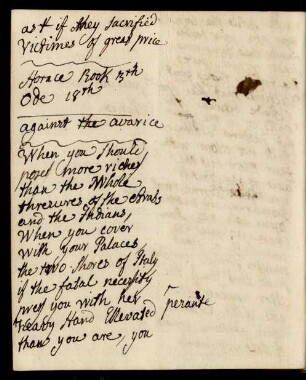 as if they sacrified
Victimes of great price
Horace Book 3th
Ode 18th
against the avarice
When you should
posses more riches
than the Whole
thresures of the Arabs
and the Indians,
When you cover
with your Palaces
the two Shores of Italy
if the fatal necessity
press you with her
Heavy Hand Elevated
than you are, you
perante